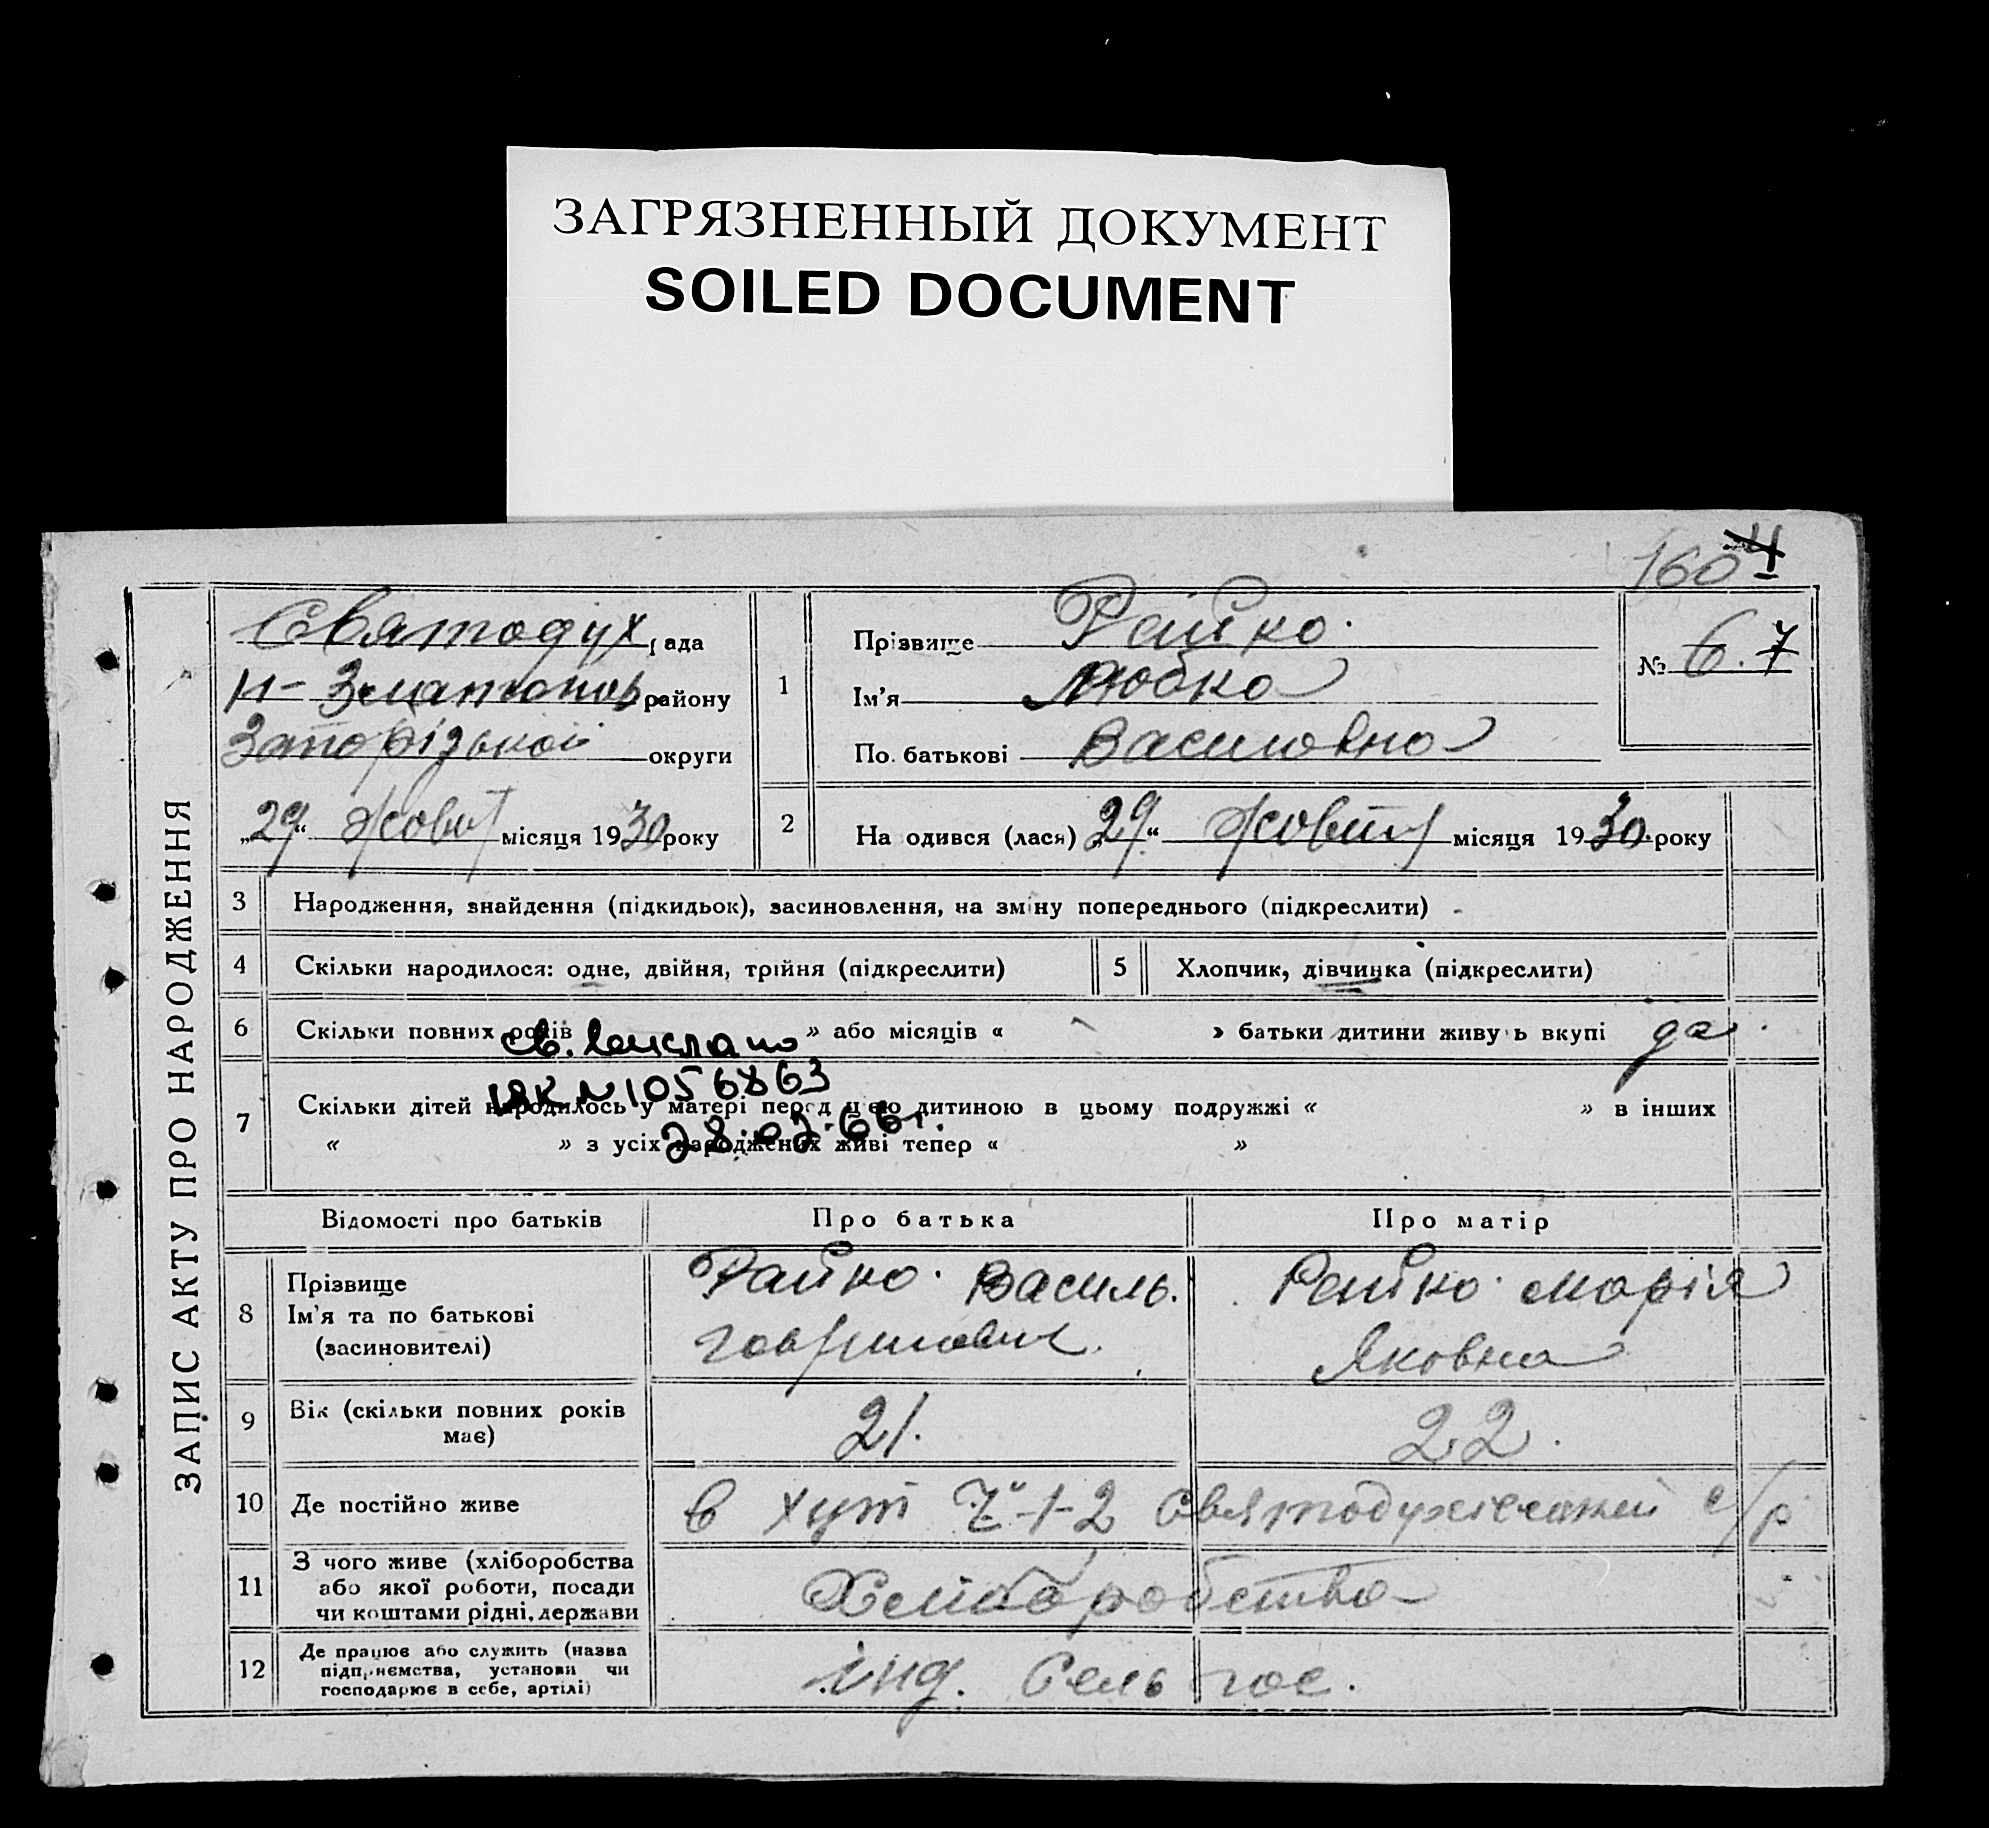 ЗАГРЯЗНЕННЫЙ ДОКУМЕНТ
SOILED DOCUMENT
160 4
ЗАПИС АКТУ ПРО НАРОДЖЕННЯ
Святодух рада
Н- Златополь району
Запорізької округи
„29“ Жовт місяця 1930 року
1 Прізвище Райко.
Ім'я Любка
По батькові Василовна
№ 6. 7
2 Народився (лася) „29“ Жовтн місяця 1930 року
3 Народження, знайдення (підкидьок), засиновлення, на зміну попереднього (підкреслити)
4 Скільки народилося: одне, двійня, трійня (підкреслити)
5 Хлопчик, дівчинка (підкреслити)
6 Скільки повних років » або місяців « » батьки дитини живуть вкупі да
св.
ЯК № 1056863
28.02.66 г.
7 Скільки дітей народилось у матері перед цією дитиною в цьому подружжі « » в інших
« » з усіх народжених живі тепер « »
Відомості про батьків Про батька Про матір
8 Прізвище
Ім'я та по батькові
(засиновителі)
Райко Василь.
Гаврилович.
Райко Марія
Яковна
9 Вік (скільки повних років
має)
21. 22.
10 Де постійно живе
в хут № 1-2 с/р
11 З чого живе (хліборобства
або якої роботи, посади
чи коштами рідні, держави
Хліборобства
12 Де працює або служить (назва
підприємства, установи чи
господарює в себе, артілі)
інд. Сель гос.